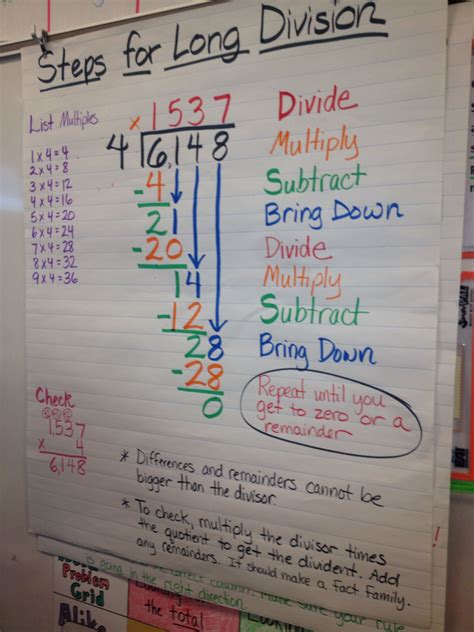 Steps for Long Division
List Multiples
1 x 4 = 4
2 x 4 = 8
3 x 4 = 12
4 x 4 = 16
5 x 4 = 20
6 x 4 = 24
7 x 4 = 28
8 x 4 = 32
9 x 4 = 36
x 1537
4 6,148
-4
21
-20
14
-12
28
-28
0
Divide
Multiply
Subtract
Bring Down
Divide
Multiply
Subtract
Bring Down
Repeat until you
get to zero or a
remainder
Check
1,537
x 4
6,148
* Differences and remainders cannot be
bigger than the divisor.
* To check, multiply the divisor times
the quotient to get the divident. Add
any remainders. It should make a fact family.
correct column. Make sure your rule
is going in the right direction.
Problem
Grid
Alike
the total